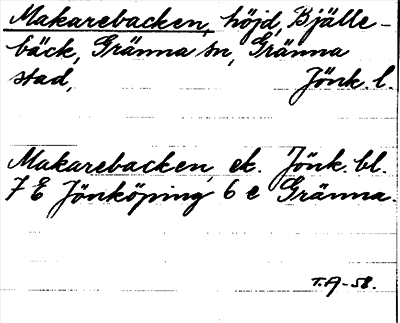 Makarebacken, höjd, Bjälle-
bäck, Gränna sn, Gränna
stad, Jönk. l.
Makarebacken, ek. Jönk. bl.
7 E Jönköping, 6 e Gränna.
T.A-58.